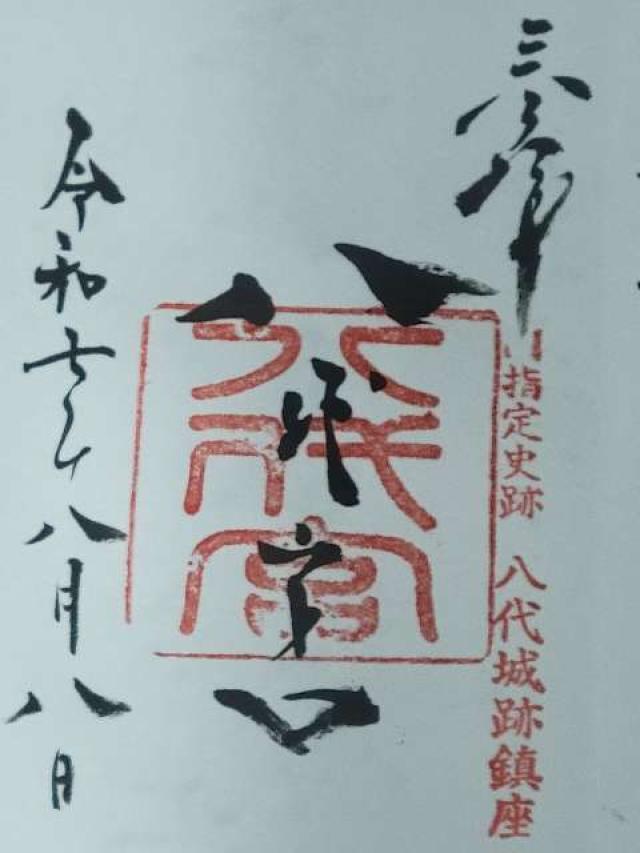 奉拝
指定史跡 八代城跡鎮座
八代宮
八代宮
令和七年八月八日